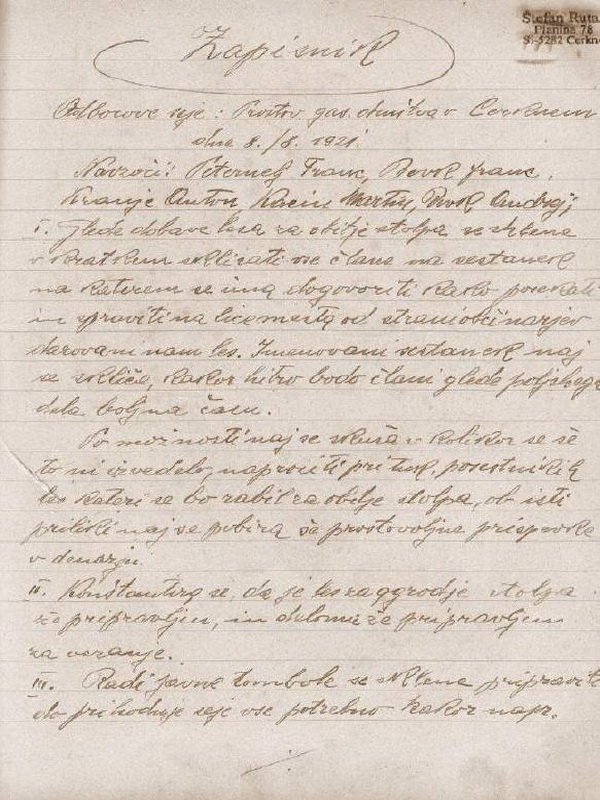 Štefan Ruta
Planina 78
SI-5282 Cerkno
Zapisnik
Odborove seje: Prostov. gas. društva v Cerknem
dne 8./8. 1921.
Navzoči: Peternelj Franc, Bevk Franc,
Kranjc Anton, Kacin Martin, Bevk Andrej;
I. Glede dobave lesa za obitje stolpa se sklene
v kratkem sklicati vse člane na sestanek
na katerem se ima dogovoriti kako posekati
in spraviti na lice mesta od strani občinarjev
darovani nam les. Imenovani sestanek naj
se skliče, kakor hitro bodo člani glede poljskega
dela bolj na času.
Po možnosti naj se skuša v kolikor se še
to ni izvedelo, naprositi pri tuk. posestnikih
les kateri se bo rabil za obitje stolpa, ob isti
priliki naj se pobira še prostovoljne prispevke
v denarju.
II. Konstantira se, da je les za ogrodje stolpa
že pripravljen, in deloma že pripravljen
za vezanje.
III. Radi javne tombole se sklene pripraviti
do prihodnje seje vse potrebno kakor napr.